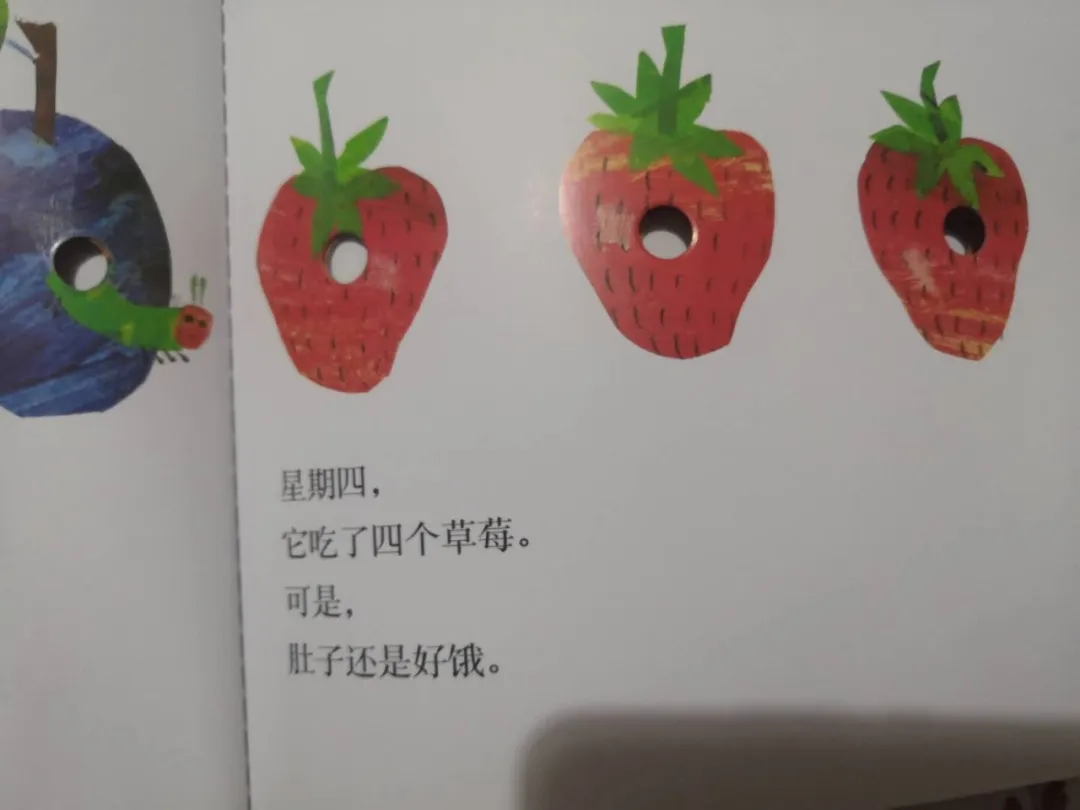 星期四，
它吃了四个草莓。
可是，
肚子还是好饿。